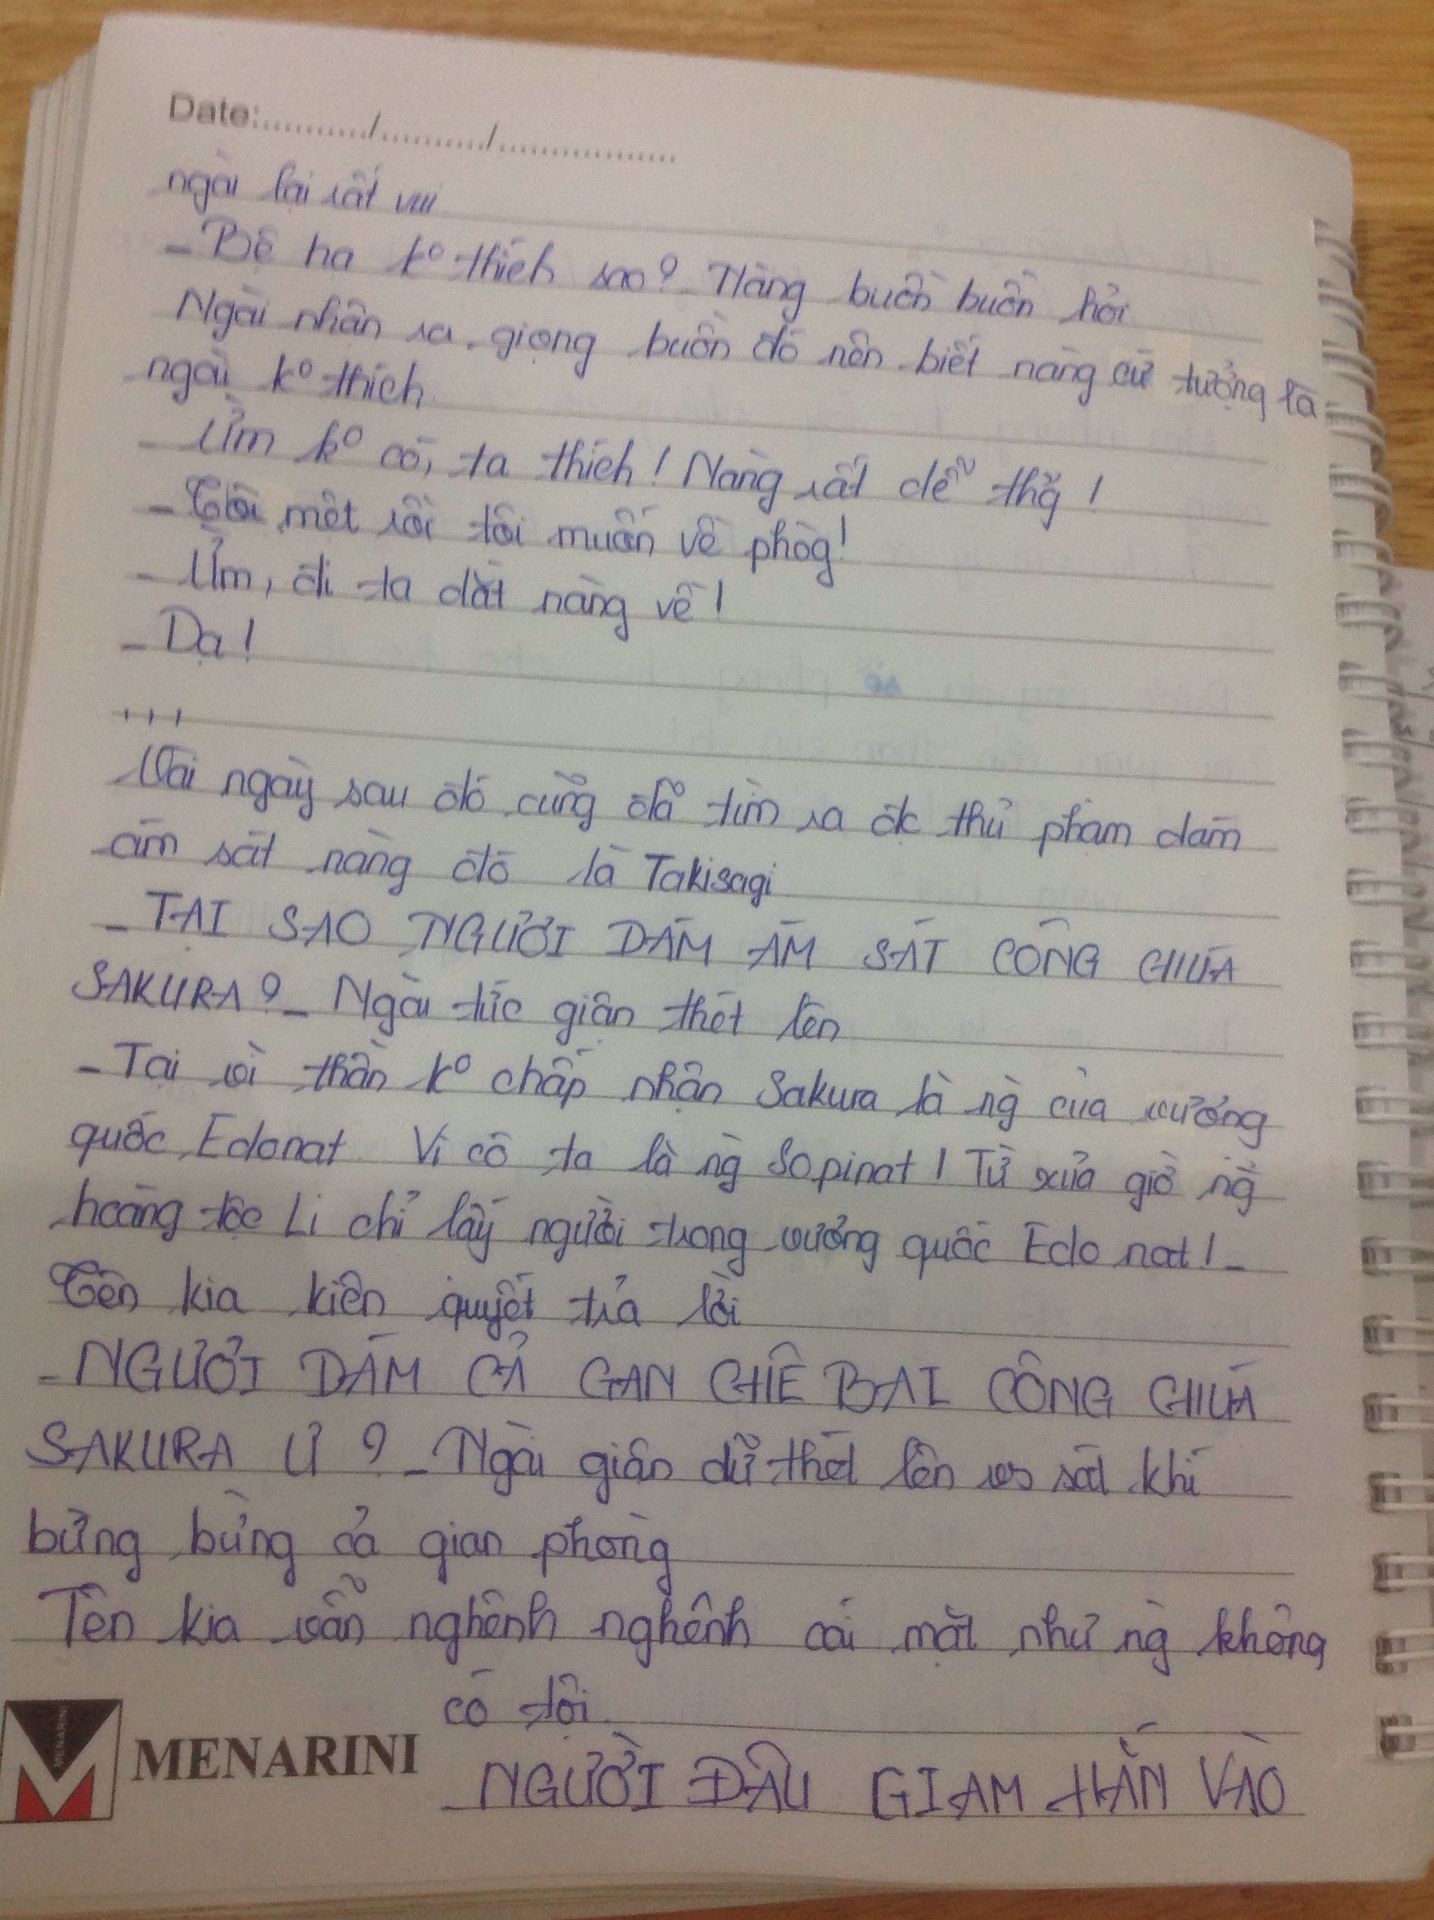 Date:........../........../................
ngài lại rất vui
- Bệ hạ kº thích sao? - Nàng buồn buồn hỏi
Ngài nhận ra giọng buồn đó nên biết nàng cứ tưởng là
ngài kº thích
- Ừm kº có, ta thích! Nàng rất dễ thg!
- Tôi mệt rồi tôi muốn về phòg!
- Ừm, đi ta dắt nàng về!
- Dạ!
...
Vài ngày sau đó cũng đã tìm ra đc thủ phạm dám
ám sát nàng đó là Takisagi
- TẠI SAO NGƯƠI DÁM ÁM SÁT CÔNG CHÚA
SAKURA? - Ngài tức giận thét lên
- Tại vì thần kº chấp nhận Sakura là ng` của vương
quốc Edonat Vì cô ta là ng` Sopinat! Từ xưa giờ ng`
hoàng tộc Li chỉ lấy người trong vương quốc Edo nat! -
Tên kia kiên quyết trả lời
- NGƯƠI DÁM CẢ GAN CHÊ BAI CÔNG CHÚA
SAKURA Ư? - Ngài giận dữ thét lên sát khí
bừng bừng cả gian phòng
Tên kia vẫn nghênh nghênh cái mặt như ng` không
có tội
MENARINI
MENARINI
- NGƯỜI ĐÂU GIAM HẮN VÀO